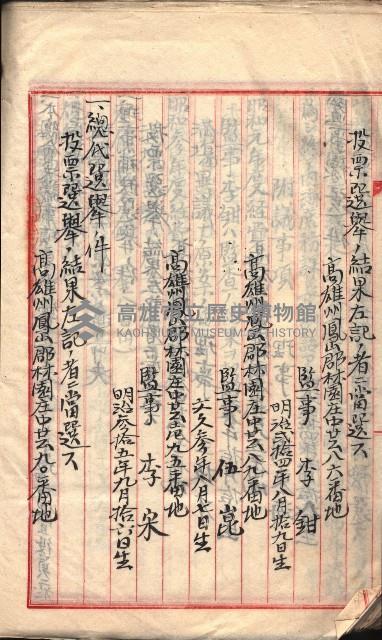 投票選舉ノ結果左記ノ者ニ當選ス
高雄州鳳山郡林園庄中芸八六番地
監事 李 鉗
明治弐拾四年八月拾九日生
高雄州鳳山郡林園庄中芸八九番地
監事 伍 崑
文久参年八月七日生
高雄州鳳山郡林園庄中芸九五番地
監事 李 宋
明治参拾五年九月拾六日生
一、總代選舉ノ件
投票選舉ノ結果左記ノ者ニ當選ス
高雄州鳳山郡林園庄中芸九〇番地
高雄市立歷史博物館
KAOHSIUNG MUSEUM OF HISTORY